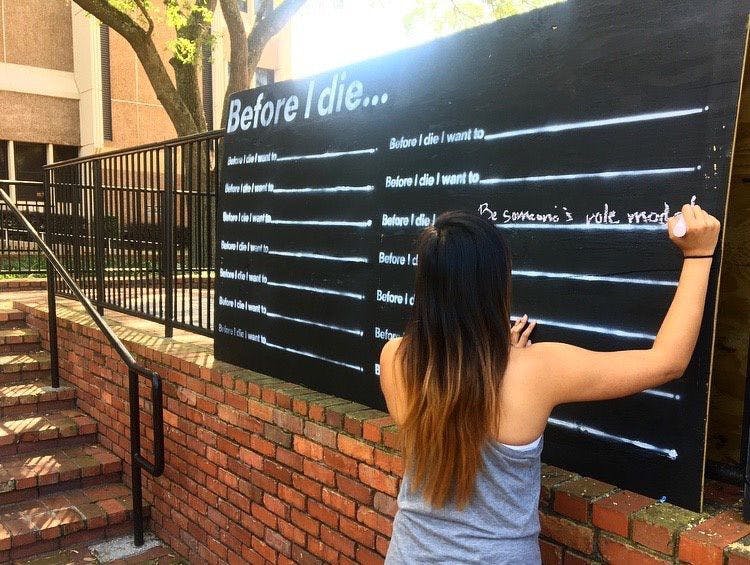 Before I die...
Before I die I want to
Before I die I want to
Before I die I want to
Before I die I want to
Before I die I want to
Before I die I want to
Before I die I want to
Before I die I want to
Before I die I want to
Before I die I Be someone's role mod
Before I d
Before I d
Before
B